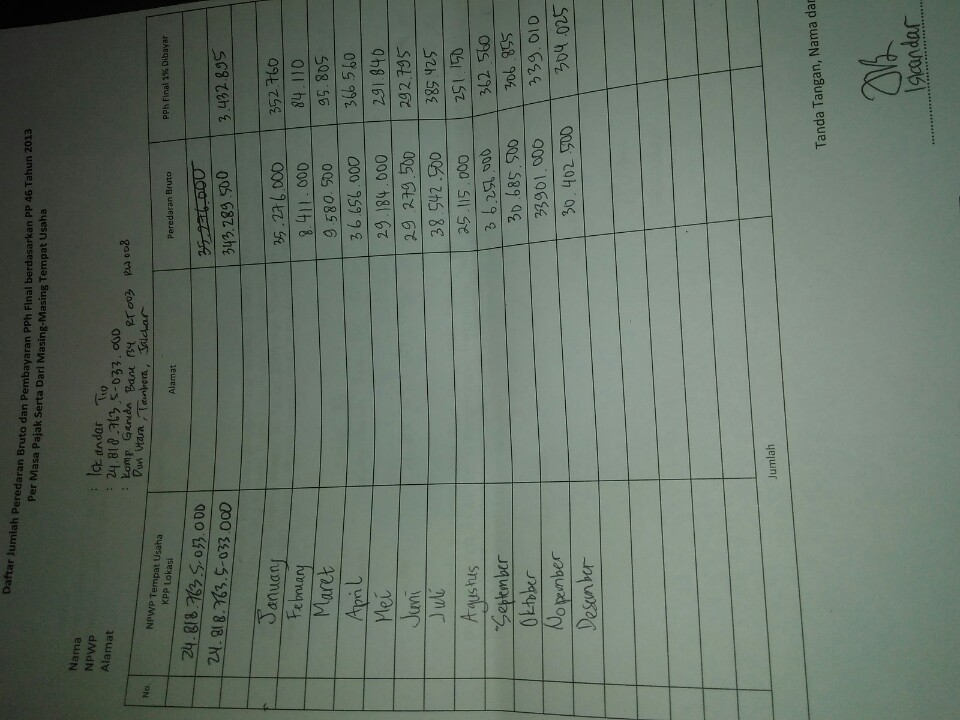 Daftar Jumlah Peredaran Bruto dan Pembayaran PPh Final berdasarkan PP 46 Tahun 2013
Per Masa Pajak Serta Dari Masing-Masing Tempat Usaha
Nama : Iskandar Tio
NPWP : 24.818.763.5-033.000
Alamat : Komp Garuda Baru B4 RT003 RW008
Duri Utara, Tambora, Jakbar
No. NPWP Tempat Usaha KPP Lokasi Alamat Peredaran Bruto PPh Final 1% Dibayar
24.818.763.5.033.000 35.276.000
24.818.763.5-033.000 343.289.500 3.432.895
January 35.276.000 352760
February 8.411.000 84.110
Maret 9.580.500 95.805
April 36.656.000 366.560
Mei 29.184.000 291.840
Juni 29.279.500 292.795
Juli 38.542.500 385.425
Agustus 25.115.000 251.150
September 36.256.000 362.560
Oktober 30.685.500 306.855
Nopember 33901.000 339.010
Desember 30.402.500 304.025
Jumlah
Tanda Tangan, Nama dan
Iskandar